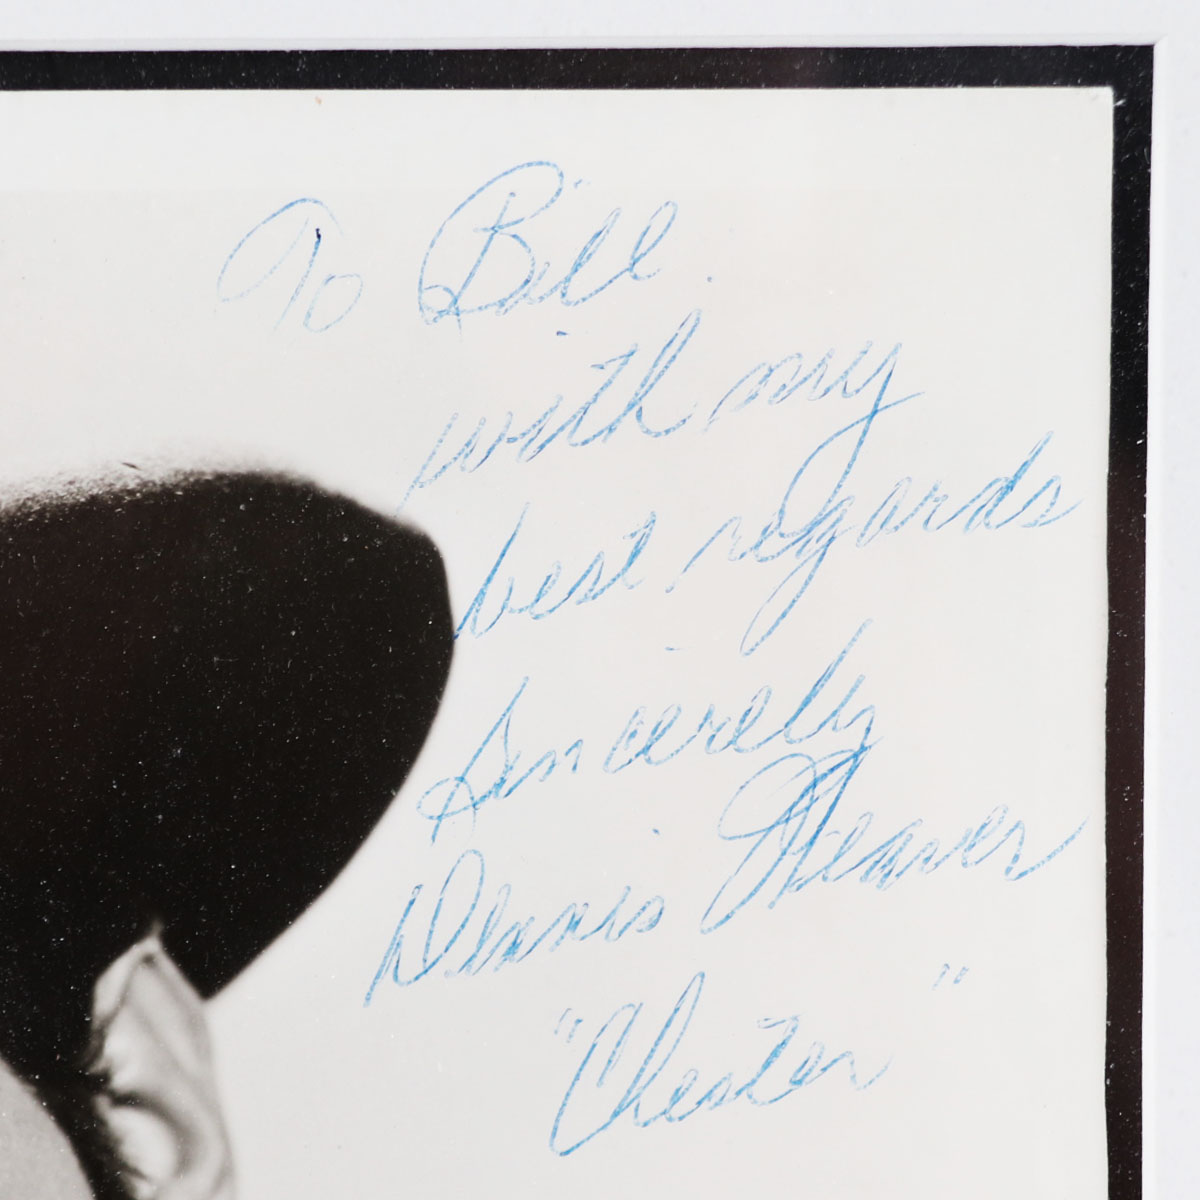 To Bill
with my
best regards
Sincerely
Dennis Weaver
"Chester"